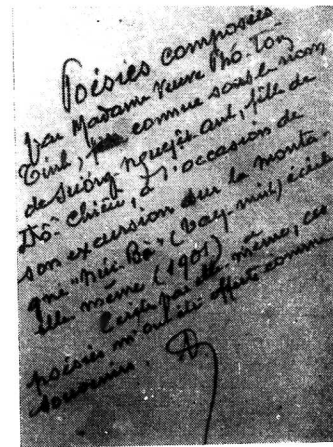 Poésies composées
par Madame Veuve Phó-Tổng
Tinh, connue sous le nom
de Sương-nguyệt-anh, fille de
Đồ-Chiểu, à l'occasion de
son excursion sur la monta-
gne "Núi-Bà" (Tây-ninh) écrites
elle même (1901)
par elle même, ces
poésies m'ont été offertes comme
souvenirs.